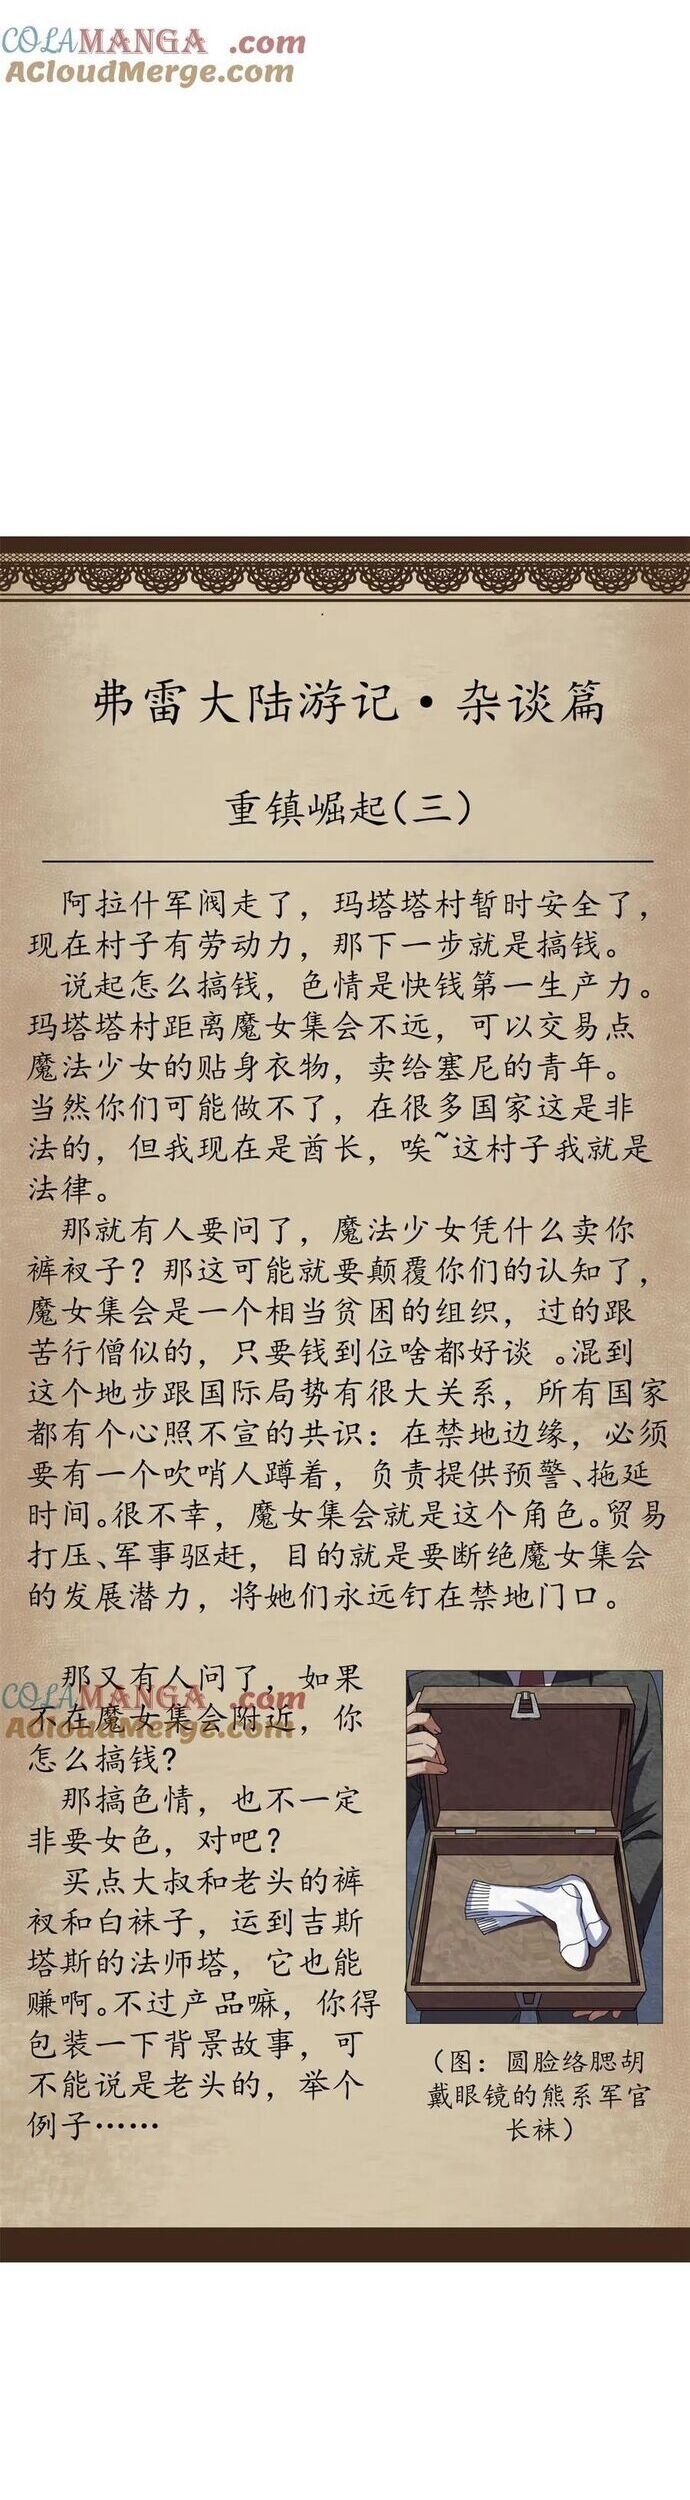 COLAMANGA.com
ACloudMerge.com
弗雷大陆游记·杂谈篇
重镇崛起(三)
阿拉什军阀走了，玛塔塔村暂时安全了，
现在村子有劳动力，那下一步就是搞钱。
说起怎么搞钱，色情是快钱第一生产力。
玛塔塔村距离魔女集会不远，可以交易点
魔法少女的贴身衣物，卖给塞尼的青年。
当然你们可能做不了，在很多国家这是非
法的，但我现在是酋长，唉~这村子我就是
法律。
那就有人要问了，魔法少女凭什么卖你
裤衩子？那这可能就要颠覆你们的认知了，
魔女集会是一个相当贫困的组织，过的跟
苦行僧似的，只要钱到位啥都好谈 。混到
这个地步跟国际局势有很大关系，所有国家
都有个心照不宣的共识：在禁地边缘，必须
要有一个吹哨人蹲着，负责提供预警、拖延
时间。很不幸，魔女集会就是这个角色。贸易
打压、军事驱赶，目的就是要断绝魔女集会
的发展潜力，将她们永远钉在禁地门口。
那又有人问了，如果
COLAMANGA.com
不在魔女集会附近，你
ACloudMerge.com
怎么搞钱？
那搞色情，也不一定
非要女色，对吧？
买点大叔和老头的裤
衩和白袜子，运到吉斯
塔斯的法师塔，它也能
赚啊。不过产品嘛，你得
包装一下背景故事，可
不能说是老头的，举个
例子……
（图：圆脸络腮胡
戴眼镜的熊系军官
长袜）